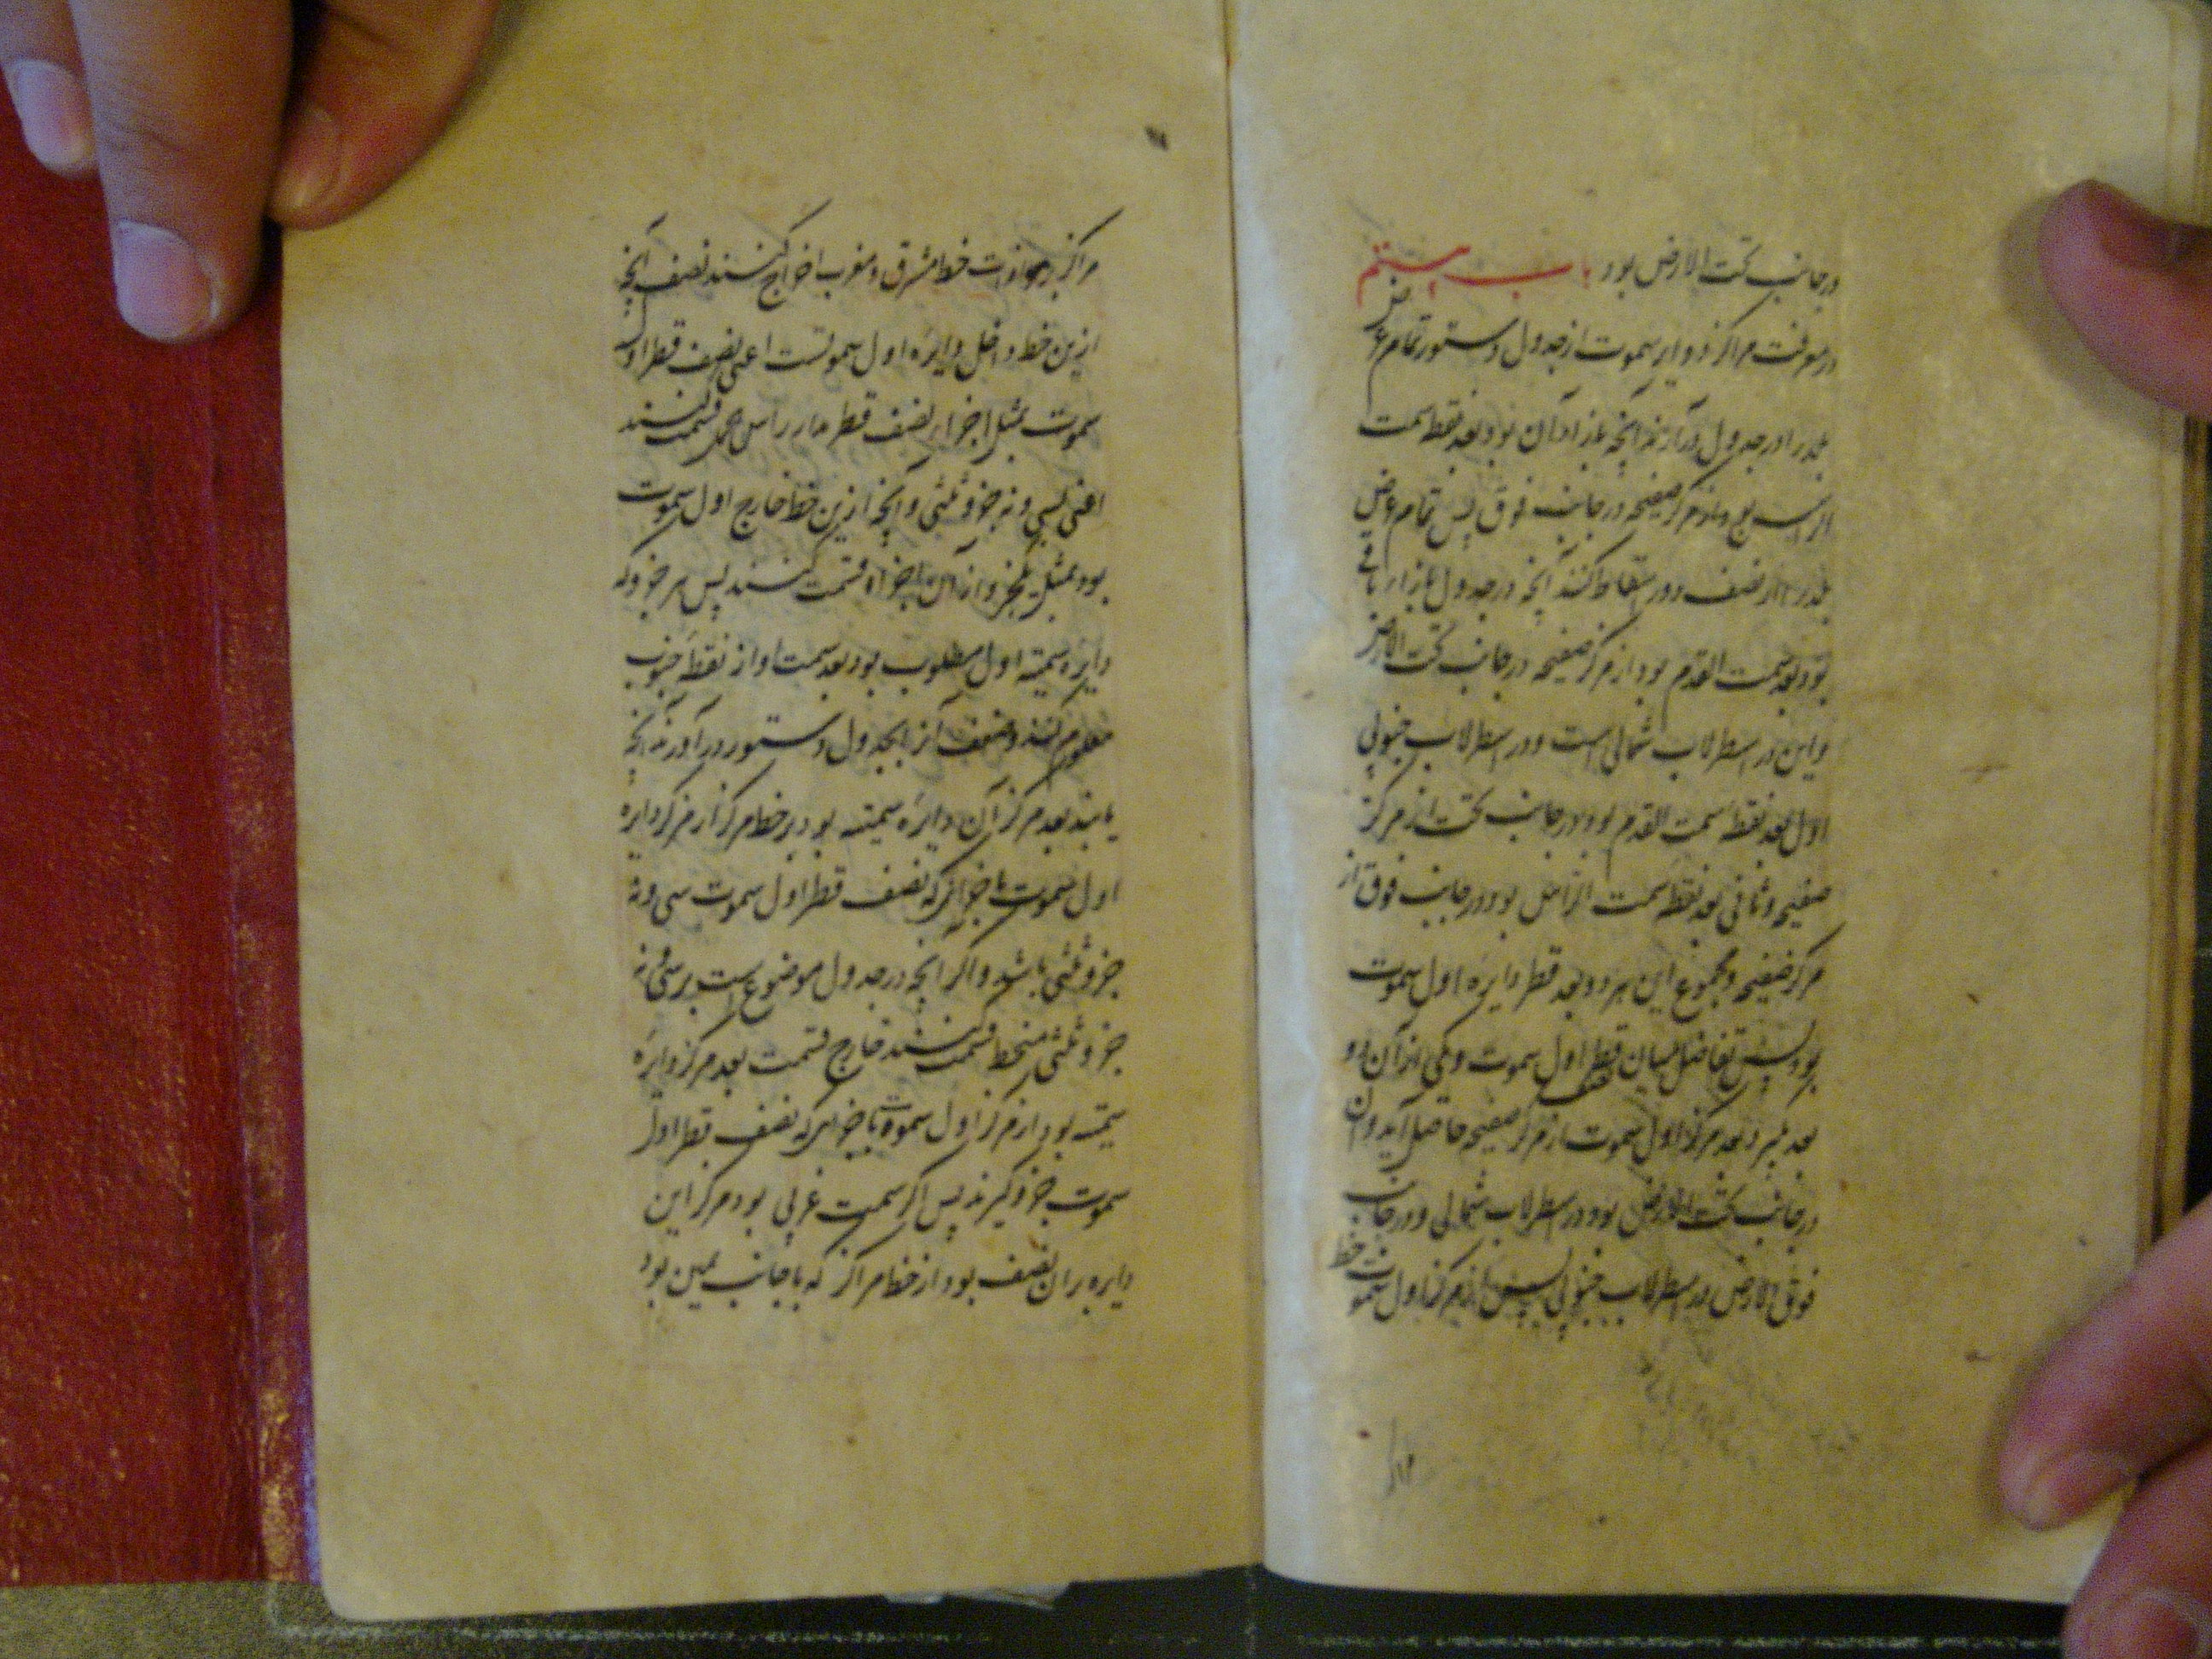 در جانب تحت الارض بود باب بیستم
در معرفت مراکز دوایر سموت از جدول دستور تمام عرض
بلد را در جدول درآرند آنچه بازاء آن بود بعد نقطه سمت
الراس بود از مرکز صفیحه در جانب فوق پس تمام عرض
بلد را از نصف دور اسقاط کنند آنچه در جدول بازاء باقی
بود بعد سمت القدم بود از مرکز صفیحه در جانب تحت الارض
و این در اسطرلاب شمالی است و در اسطرلاب جنوبی
اول بعد نقطه سمت القدم بود در جانب تحت از مرکز
صفیحه و ثانی بعد نقطه سمت الراس بود در جانب فوق از
مرکز صفیحه و مجموع این هر دو بعد قطر دایره اول سموت
بود پس تفاضل میان نصف قطر اول سموت و یکی از آن دو
بعد بگیرد بعد مرکز اول سموت از مرکز صفیحه حاصل آید و آن
در جانب تحت الارض بود در اسطرلاب شمالی و در جانب
فوق الارض در اسطرلاب جنوبی پس از مرکز اول سموت خط
مراکز بر محاذات خط مشرق و مغرب اخراج کنند نصف آنچه
ازین خط داخل دایره اول سموتست اعنی نصف قطر اول
سموت بمثل اجزاء نصف قطر مدار راس الحمل قسمت کنند
اعنی بسی و نه جزو و ثلثی و آنچه ازین خط خارج اول سموت
بود بمثل یکجزو از آن اجزاء قسمت کنند پس هر جزو که
دایره سمتیه اول مطلوب بود بعد سمت او از نقطه جنوب
معلوم کنند و نصف آنرا بجدول دستور درآورند آنچه
یابند بعد مرکز آن دایره سمتیه بود بر خط مرکز از مرکز دایره
اول سموت باجزائی که نصف قطر اول سموت سی و نه
جزو و ثلثی باشد و اگر آنچه در جدول موضوع است بر سی و نه
جزو و ثلثی منحط قسمت کنند خارج قسمت بعد مرکز دایره
سمتیه بود از مرکز اول سموت باجزائی که نصف قطر اول
سموت جزو گیرند پس اگر سمت غربی بود مرکز این
دایره بر آن نصف بود از خط مراکز که با جانب یمین بود